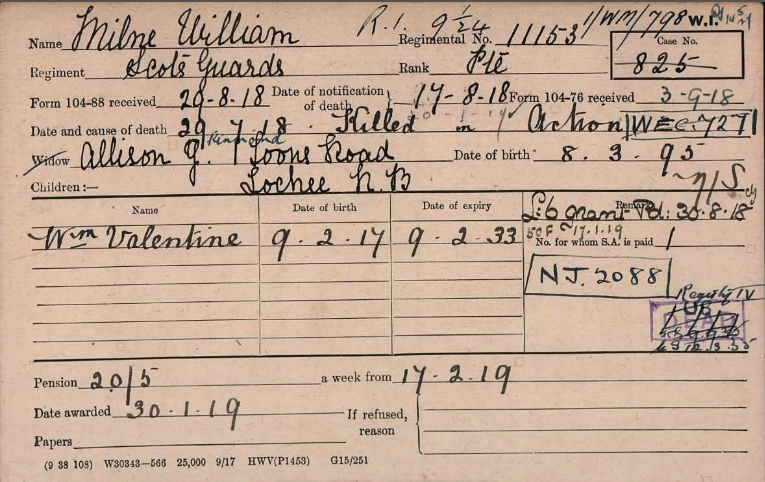 R.1. 9 1/24 1/WM/798 W.I.
Name Milne William Regimental No. 11153 Case No.
Regiment Scots Guards Rank Pte 825
Form 104-88 received 29-8-18 Date of notification of death 17-8-18 Form 104-76 received 3-9-18
Date and cause of death 29 7 18 Killed in Action WEC.727
Widow Allison G. Kinmond 7 Loons Road Date of birth 8.3.95
Children:— Lochee N.B N/S
Name Date of birth Date of expiry Remarks
£6 grant Pd: 30.8.18
50F 17.1.19
Wm Valentine 9.2.17 9.2.33 No. for whom S.A. is paid 1
NJ.2088
Registry IV
DEAD
Pension 20/5 a week from 17.2.19
Date awarded 30.1.19 If refused, reason
Papers
(9 38 108) W30343—566 25,000 9/17 HWV(P1453) G15/251